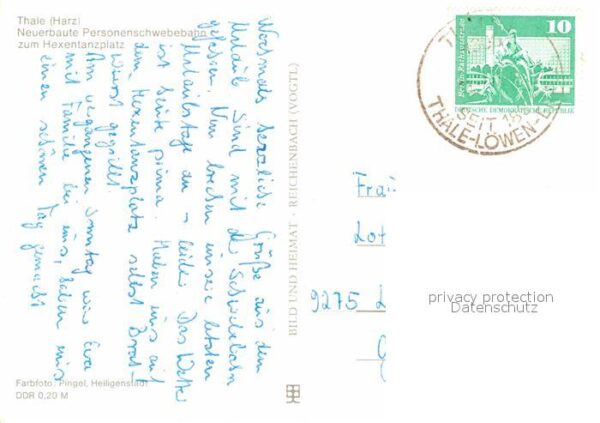 Thale (Harz)
Neuerbaute Personenschwebebahn
zum Hexentanzplatz
Nochmals herzliche Grüße aus dem
Urlaub. Sind mit der Schwebebahn
gefahren. Nun brechen unsere letzten
Urlaubstage an – leider. Das Wetter
ist heute prima. Haben uns auf
dem Hexentanzplatz selbst Brat-
wurst gegrillt.
Am vergangenen Sonntag war
mit Familie bei uns, haben uns
einen schönen Tag gemacht.
Farbfoto: Pingel, Heiligenstadt
DDR 0,20 M
BILD UND HEIMAT · REICHENBACH (VOGTL)
10
DEUTSCHE DEMOKRATISCHE REPUBLIK
SEIT 18
THALE-LÖWEN-
Lot
9275 L
privacy protection
Datenschutz